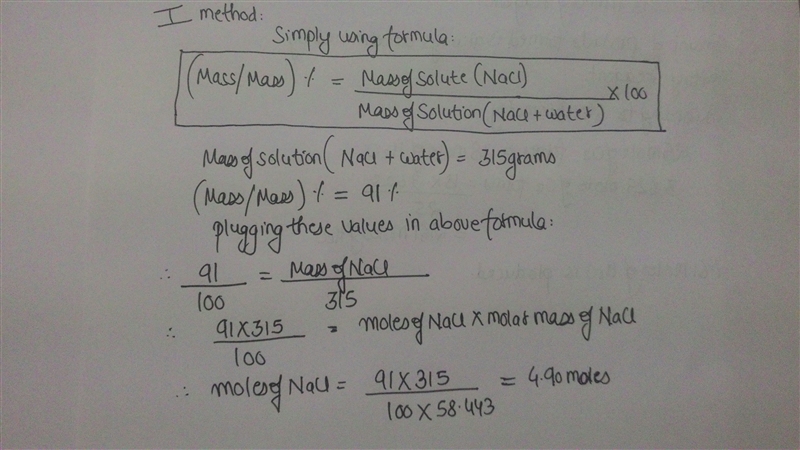 I method:
Simply using formula:
(Mass/Mass) % = Mass of Solute (NaCl) / Mass of Solution (NaCl + water) × 100
Mass of solution (NaCl + water) = 315 grams
(Mass/Mass) % = 91 %
plugging these values in above formula:
∴ 91 / 100 = Mass of NaCl / 315
∴ 91 × 315 / 100 = moles of NaCl × molar mass of NaCl
∴ moles of NaCl = 91 × 315 / 100 × 58.443 = 4.90 moles